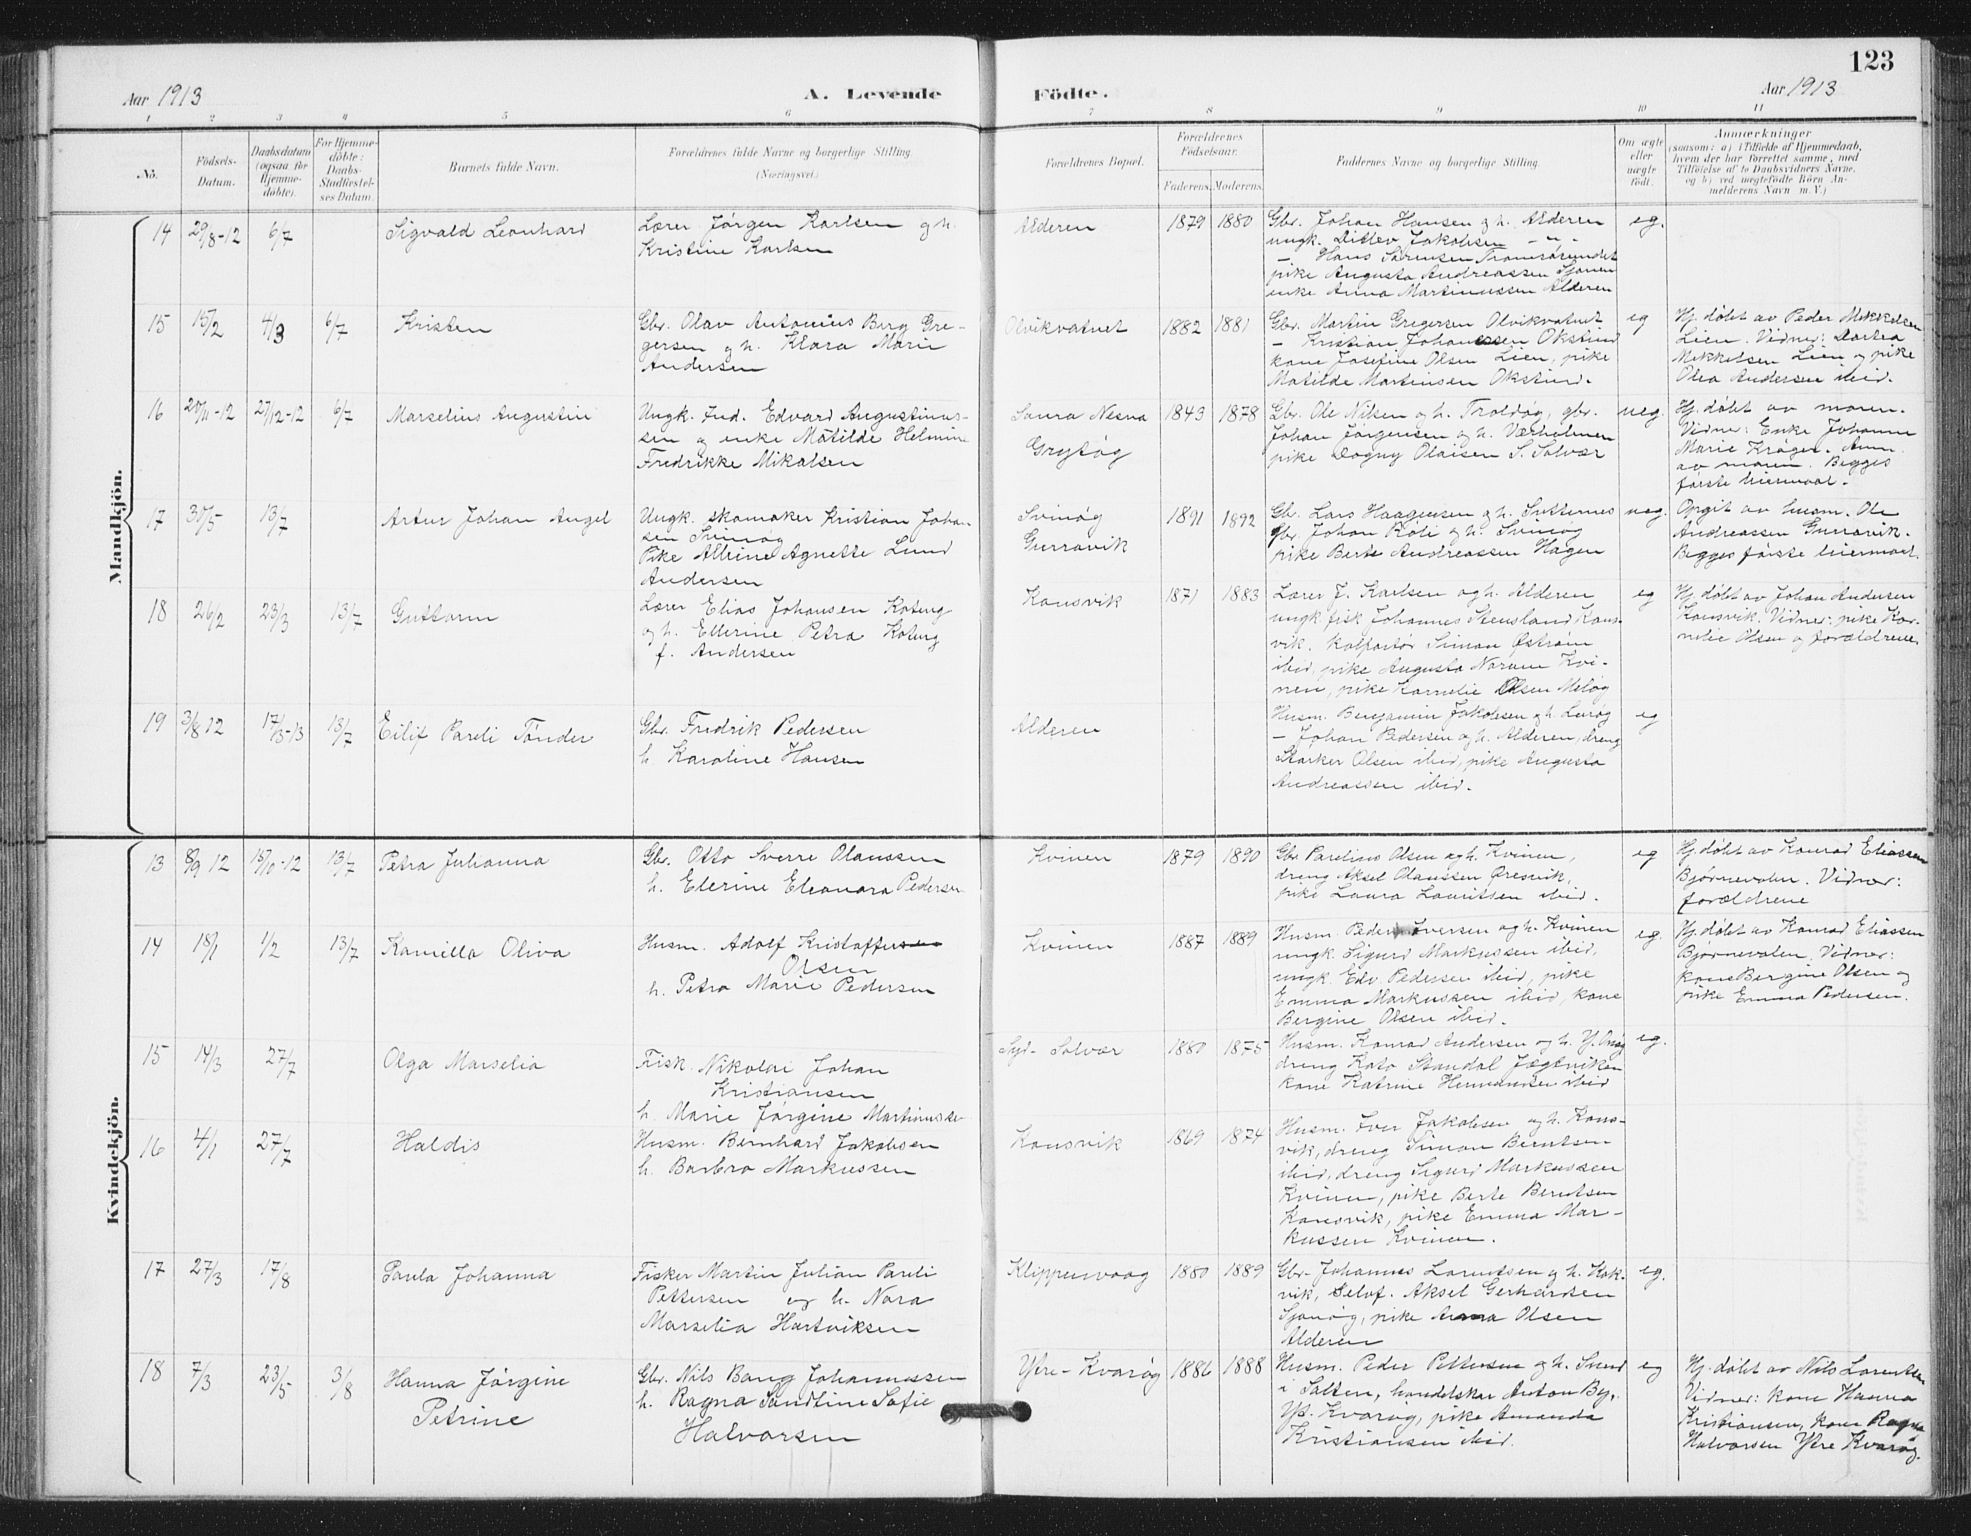 123
Aar 1913
A. Levende
Födte.
Aar 1913
1 2 3 4 5 6 7 8 9 10 11
No.
Födsels-
Datum.
Daabsdatum
(ogsaa for
Hjemme-
döbte).
For Hjemme-
döbte:
Daabs-
Stadfæstel-
ses Datum.
Barnets fulde Navn.
Forældrenes fulde Navne og borgerlige Stilling
(Næringsvei.)
Forældrenes Bopæl.
Forældrenes
Födselsaar.
Faderens. Moderens.
Faddernes Navne og borgerlige Stilling.
Om ægte
eller
uægte
födt.
Anmærkninger
(saasom: a) i Tilfælde af Hjemmedaab,
hvem der har forrettet samme, med
Tilföielse af to Daabsvidners Navne,
og b) ved uægtefödte Börn An-
melderens Navn m. V.)
Mandkjön.
14 29/8-12 6/7
Sigvald Leonhard
Lærer Jørgen Karlsen og h.
Kristine Karlsen
Alderen
1879 1880
Gbr. Johan Hansen og h. Alderen
ungk. Ditlev Jakobsen - " -
- Hans Sørensen Tromsøsundet
pike Augusta Andreassen Sjonen
enke Anna Martinussen Alderen
eg.
15 15/2 4/3 6/7
Kristen
Gbr. Olav Antonius Berg Gre-
gersen og h. Klara Marie
Andersen
Olvikvatnet
1882 1881
Gbr. Martin Gregersen Olvikvatnet
- Kristian Johanssen Okstind
kone Josefine Olsen Lien, pike
Matilde Martinsen Okstind.
eg
Hj. døbt av Peder Mikkelsen
Lien. Vidner: Dortea
Mikkelsen Lien og pike
Olea Andersen ibid.
16 20/11-12 27/12-12 6/7
Marselius Augustin
Ungk. Ind. Edvard Augustinus-
sen og enke Matilde Helmine
Fredrikke Mikalsen
Nesna
Grytøy
1843 1878
Gbr. Ole Nilsen og h. Troldøy, gbr.
Johan Jørgensen og h. Værholmen
pike Dagny Olaisen S. Solvær
ueg.
Hj. døbt av moren.
Vidne: Enke Johanna
Marie Krøger. Anm.
av moren. Begges
første leiermaal.
17 30/5 13/7
Artur Johan Angel
Ungk. skomaker Kristian Johan-
sen Svinøy
Pike Albine Agnette Lund
Andersen
Svinøy
Gurravik
1891 1892
Gbr. Lars Haagensen og h.
gbr. Johan Røli og h. Svinøy
pike Berte Andreassen Hagen
ueg.
Opgit av husm. Ole
Andreassen Gurravik.
Begges første leiermaal.
18 26/2 23/3 13/7
Guttorm
Lærer Elias Johansen Koteng
og h. Ellerine Petra Koteng
f. Andersen
Konsvik
1871 1883
Lærer J. Karlsen og h. Alderen
ungk. fisk. Johannes Stensland Kons-
vik, kolportør Simon Østrøm
ibid, pike Augusta Norum Kvi-
nen, pike Kornelie Olsen Meløy
eg
Hj. døbt av Johan Andersen
Konsvik. Vidner: pike Kor-
nelie Olsen og forældrene
19 3/8 12 17/3-13 13/7
Eilif Pareli Tønder
Gbr. Fredrik Pedersen
h. Karoline Hansen
Alderen
Husm. Benjamin Jakobsen og h. Lurøy
- Johan Pedersen og h. Alderen, dreng
Starker Olsen ibid, pike Augusta
Andreassen ibid.
eg
Kvindekjön.
13 8/9 12 15/10-12 13/7
Petra Julianna
Gbr. Otto Sverre Olaussen
h. Elerine Eleonora Pedersen
Kvinen
1879 1890
Gbr. Parelius Olsen og h. Kvinen,
dreng Aksel Olaussen Øresvik,
pike Laura Lauritsen ibid.
eg
Hj. døbt av Konrad Eliassen
Bjørnevalen. Vidner:
forældrene
14 18/1 1/2 13/7
Kamilla Oliva
Husm. Adolf Kristoffersen
Olsen
h. Petra Marie Pedersen
Kvinen
1887 1889
Husm. Peder Iversen og h. Kvinen
ungk. Sigurd Markussen ibid,
ungk. Edv. Pedersen ibid, pike
Emma Markussen ibid, kone
Bergine Olsen ibid.
eg.
Hj. døbt av Konrad Eliassen
Bjørnevalen. Vidner:
kone Bergine Olsen og
pike Emma Pedersen.
15 14/3 27/7
Olga Marselia
Fisk. Nikolai Johan
Kristiansen
h. Marie Jørgine Martinussen
Syd-Solvær
1880 1875
Husm. Konrad Andersen og h.
dreng Kato Standal Jægtviken
kone Katrine Hermansen ibid
eg.
16 4/1 27/7
Haldis
Husm. Bernhard Jakobsen
h. Barbro Markussen
Konsvik
1869 1874
Husm. Iver Jakobsen og h. Kons-
vik, dreng Simon Berntsen
ibid, dreng Sigurd Markussen
Kvinen, pike Berte Berntsen
Konsvik, pike Emma Mar-
kussen Kvinen.
17 27/3 17/8
Paula Johanna
Fisker Martin Julian Pareli
Pettersen og h. Nora
Marselia Hartviksen
Klippenvaag
1880 1889
Gbr. Johannes Lorentsen og h. Kok-
vik, selvf. Aksel Gerhardsen
Sjonøy, pike Anna Olsen
Alderen
eg.
18 7/3 23/5 3/8
Hanna Jørgine
Petrine
Gbr. Nils Bang Johannessen
h. Ragna Sandtine Sofie
Halvorsen
Ytre-Kvarøy
1886 1888
Husm. Peder Pettersen og h. Sund
i Salten, handelskar Anton By,
Yt. Kvarøy, pike Amanda
Kristiansen ibid.
eg
Hj. døbt av Nils Lorentsen
Vidner: kone Hanna
Kristiansen, kone Ragna
Halvorsen Ytre Kvarøy.